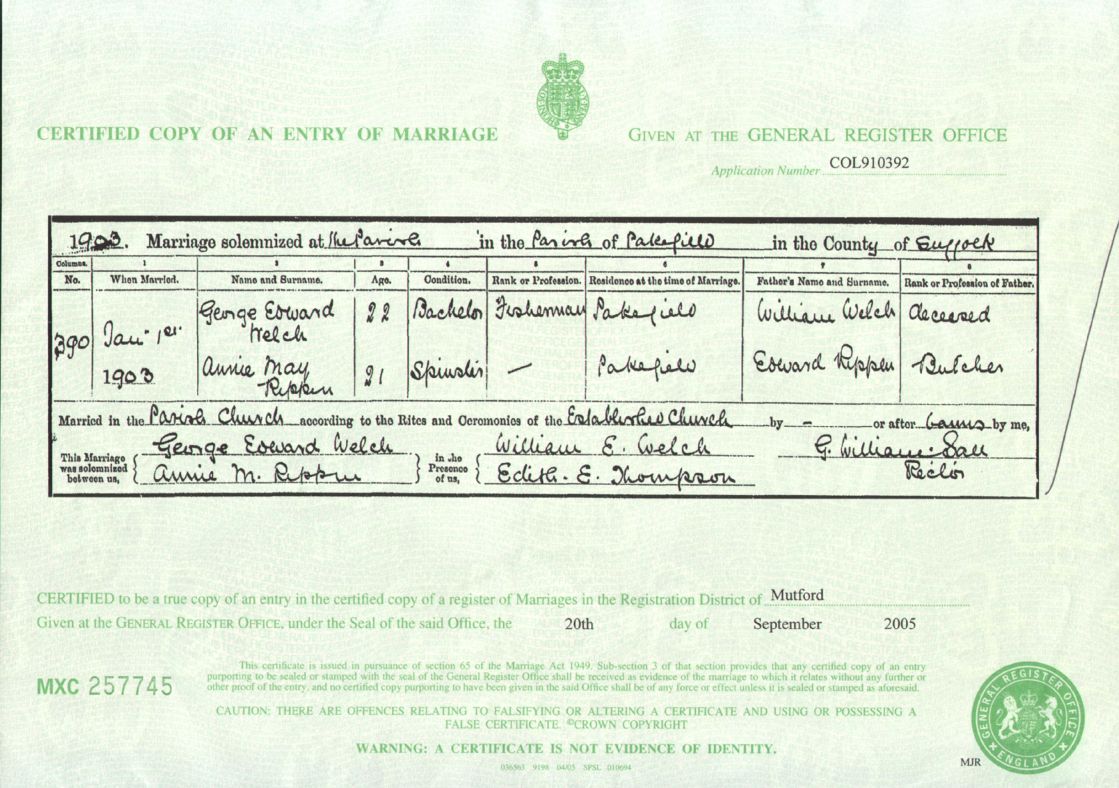 CERTIFIED COPY OF AN ENTRY OF MARRIAGE
GIVEN AT THE GENERAL REGISTER OFFICE
Application Number COL910392
1903. Marriage solemnized at the Parish in the Parish of Pakefield in the County of Suffock
Columns. 1 2 3 4 5 6 7 8
No. When Married. Name and Surname. Age. Condition. Rank or Profession. Residence at the time of Marriage. Father's Name and Surname. Rank or Profession of Father.
390 Jany 1st 1903 George Edward Welch 22 Bachelor Fisherman Pakefield William Welch deceased
Annie May Rippen 21 Spinster — Pakefield Edward Rippen Butcher
Married in the Parish Church according to the Rites and Ceremonies of the Established Church by – or after banns by me,
This Marriage was solemnized between us, George Edward Welch Annie M. Rippen in the Presence of us, William E. Welch Edith. E. Thompson G. William Sall Rector
CERTIFIED to be a true copy of an entry in the certified copy of a register of Marriages in the Registration District of Mutford
Given at the GENERAL REGISTER OFFICE, under the Seal of the said Office, the 20th day of September 2005
MXC 257745
This certificate is issued in pursuance of section 65 of the Marriage Act 1949. Sub-section 3 of that section provides that any certified copy of an entry
purporting to be sealed or stamped with the seal of the General Register Office shall be received as evidence of the marriage to which it relates without any further or
other proof of the entry, and no certified copy purporting to have been given in the said Office shall be of any force or effect unless it is sealed or stamped as aforesaid.
CAUTION: THERE ARE OFFENCES RELATING TO FALSIFYING OR ALTERING A CERTIFICATE AND USING OR POSSESSING A
FALSE CERTIFICATE. ©CROWN COPYRIGHT
WARNING: A CERTIFICATE IS NOT EVIDENCE OF IDENTITY.
036563 9198 04/05 SPSL 010694
MJR
GENERAL REGISTER OFFICE
ENGLAND